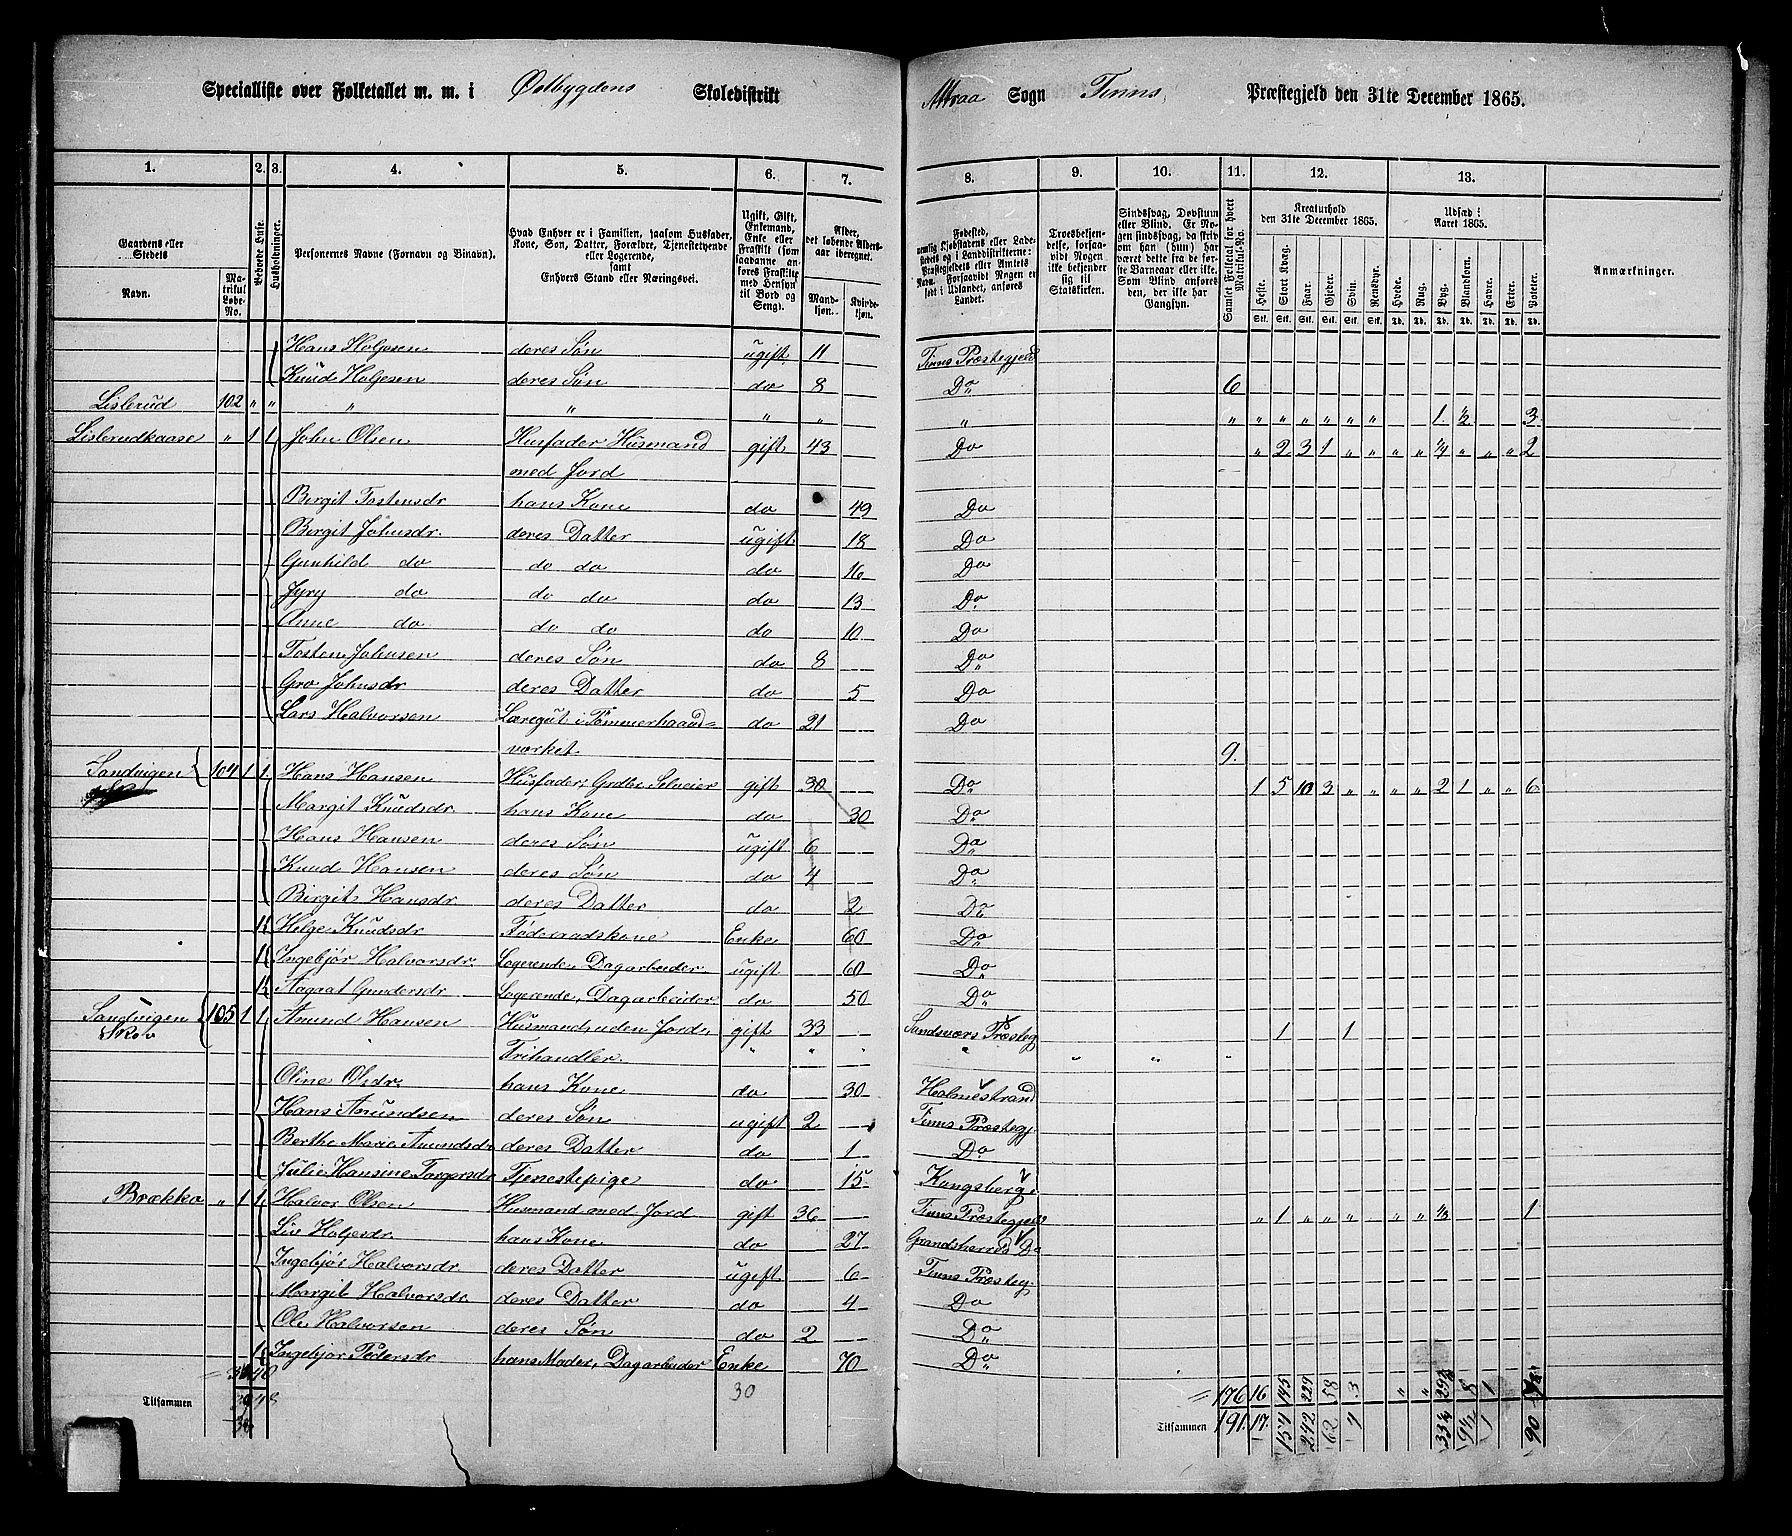 Specialliste over Folketallet m. m. i Østbygdens Skoledistrikt Attraa Sogn Tinns Præstegjeld den 31te December 1865.
1. 2. 3. 4. 5. 6. 7. 8. 9. 10. 11. 12. 13.
Gaardens eller Stedets
Navn.
Matrikul Løbe-No.
Beboede Huse.
Husholdninger.
Personernes Navne (Fornavn og Binavn).
Hvad Enhver er i Familien, saasom Husfader, Kone, Søn, Datter, Forældre, Tjenestetyende eller Logerende, samt Enhvers Stand eller Næringsvei.
Ugift, Gift, Enkemand, Enke eller Fraskilt (som saadanne anføres Fraskilte med Hensyn til Bord og Seng).
Alder, det løbende Aldersaar iberegnet.
Mandkjøn. Kvindekjøn.
Troesbekjendelse, forsaavidt Nogen ikke bekjender sig til Statskirken.
Sindssvag, Døvstum eller Blind. Er Nogen sindssvag, da skrives om han (hun) har været dette før Barneaar eller ikke. Som Blind anføres den, der ikke har Gangsyn.
Samlet Folketal for hvert Matrikul-No.
Kreaturhold den 31te December 1865.
Heste. Stort Kvæg. Faar. Gjeder. Svin. Rensdyr.
Udsæd i Aaret 1865.
Hvede. Rug. Byg. Blandkorn. Havre. Erter. Poteter.
Anmærkninger.
Hans Holjesen deres Søn ugift 11 Tinns Præstegjeld
Knud Holjesen deres Søn do 8 Do 6
Lislerud 102 " " " " " " " " " " " " " " 1 1/2 3
Lislerudkaase " 1 1 John Olsen Husfader Husmand gift 43 Do " 2 3 1 " " " " 1/4 " " " 2
med Jord
Birgit Tostensdr hans Kone do 49 Do
Birgit Johnsdr. deres Datter ugift 18 Do
Gunhild do do do do 16 Do
Jyry do do do do 13 Do
Anne do do do do 10 Do
Tosten Johnsen deres Søn do 8 Do
Gro Johnsdr deres Datter do 5 Do
Lars Halvorsen Læregut i Tømmerhaand= do 21 Do
værket 9.
Sandvigen 104 1 1 Hans Hansen Husfader, Grdbr. Selveier gift 30 Do 1 5 10 3 " " " " 2 1 " " 6
Margit Knudsdr. hans Kone do 30 Do
Hans Hansen deres Søn ugift 6 Do
Knud Hansen deres Søn do 4 Do
Birgit Hansdr. deres Datter do 2 Do
Helge Knudsdr Føderaadskone Enke 60 Do
Ingebjør Halvorsdr. Logerende, Dagarbeider ugift 60 Do
Aagaat Gundersdr Logerende, Dagarbeider do 50 Do
Sandvigen 105 1 1 Amund Hansen Husmand uden Jord, gift 33 Sandsværs Præsteg 1 1
Skov Frihandler. " " " " " "
Oline Olsdr. hans Kone do 30 Holmestrand
Hans Amundsen deres Søn ugift 2 Tinns Præstegj.
Berthe Marie Amundsdr deres Datter do 1 Do
Julie Hansine Torgersdr Tjenestepige do 15 Kongsberg
Brækka " 1 1 Halvor Olsen Husmand med Jord gift 36 Tinns Præstegjeld " 1 " " " " " 1/3 1
Liv Holjesdr. hans Kone do 27 Grandsherred Do
Ingebjør Halvorsdr. deres Datter ugift 6 Tinns Præsteg.
Margit Halvorsdr. deres Datter do 4 Do
Ole Halvorsen deres Søn do 2 Do
Ingebjør Pedersdr hans Moder, Dagarbeider Enke 70 Do
30 176 16 145 229 58 3 " " 8 1
Tilsammen Tilsammen 191. 17 154 242 62 4 1 90